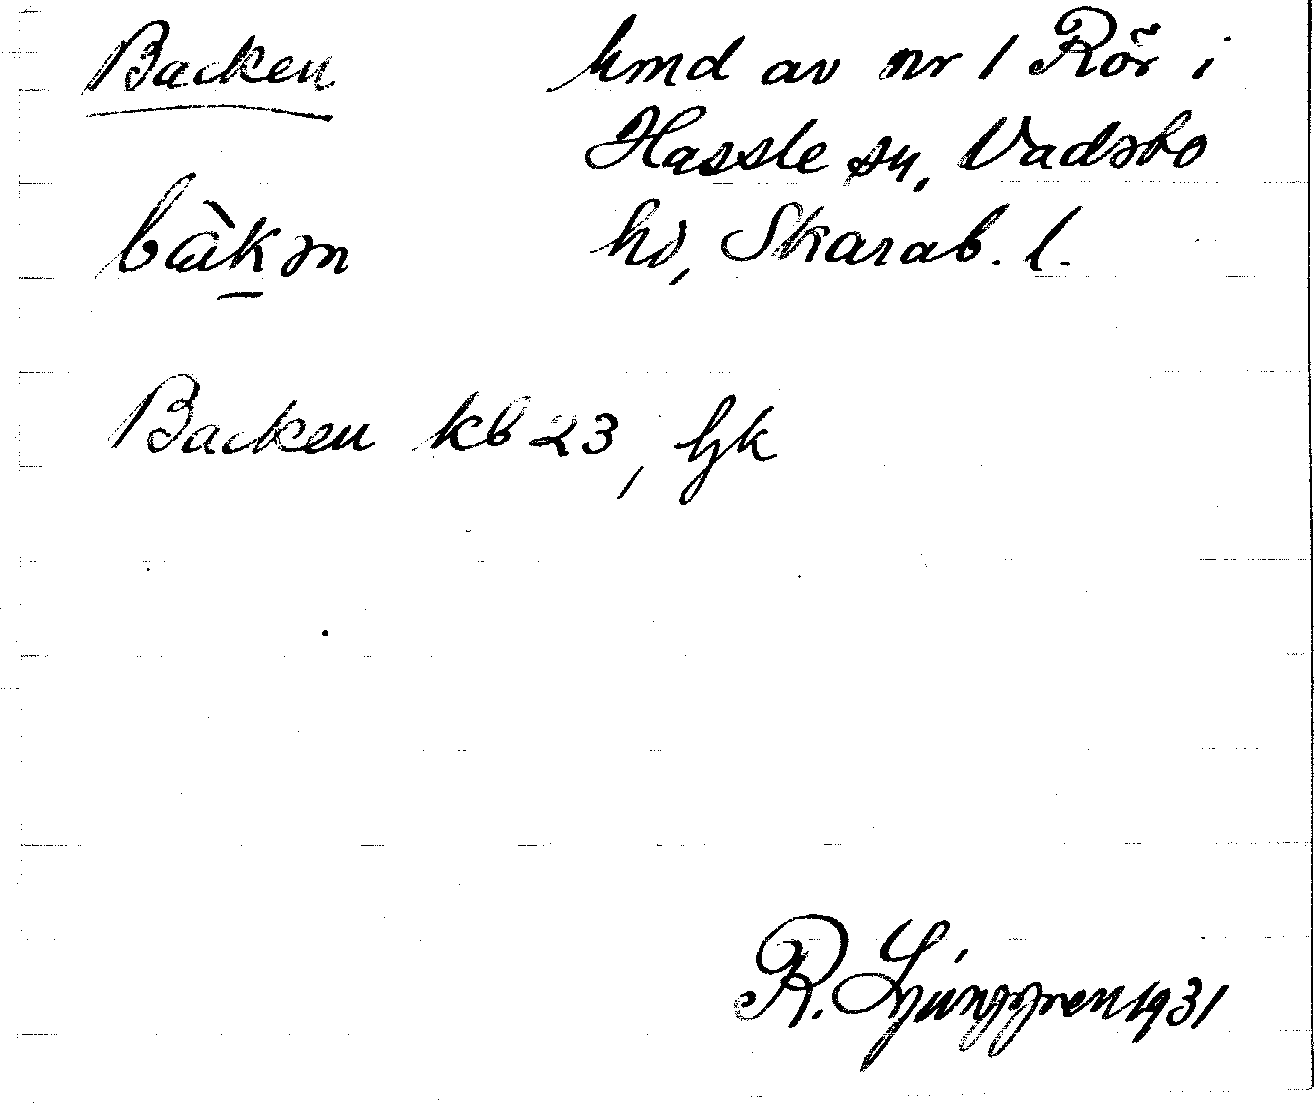 Backen hmd av nr 1 Rör i
Hassle sn, Vadsbo
bàkən hd, Skarab. l.
Backen kb 23, Gk
R. Ljunggren 1931